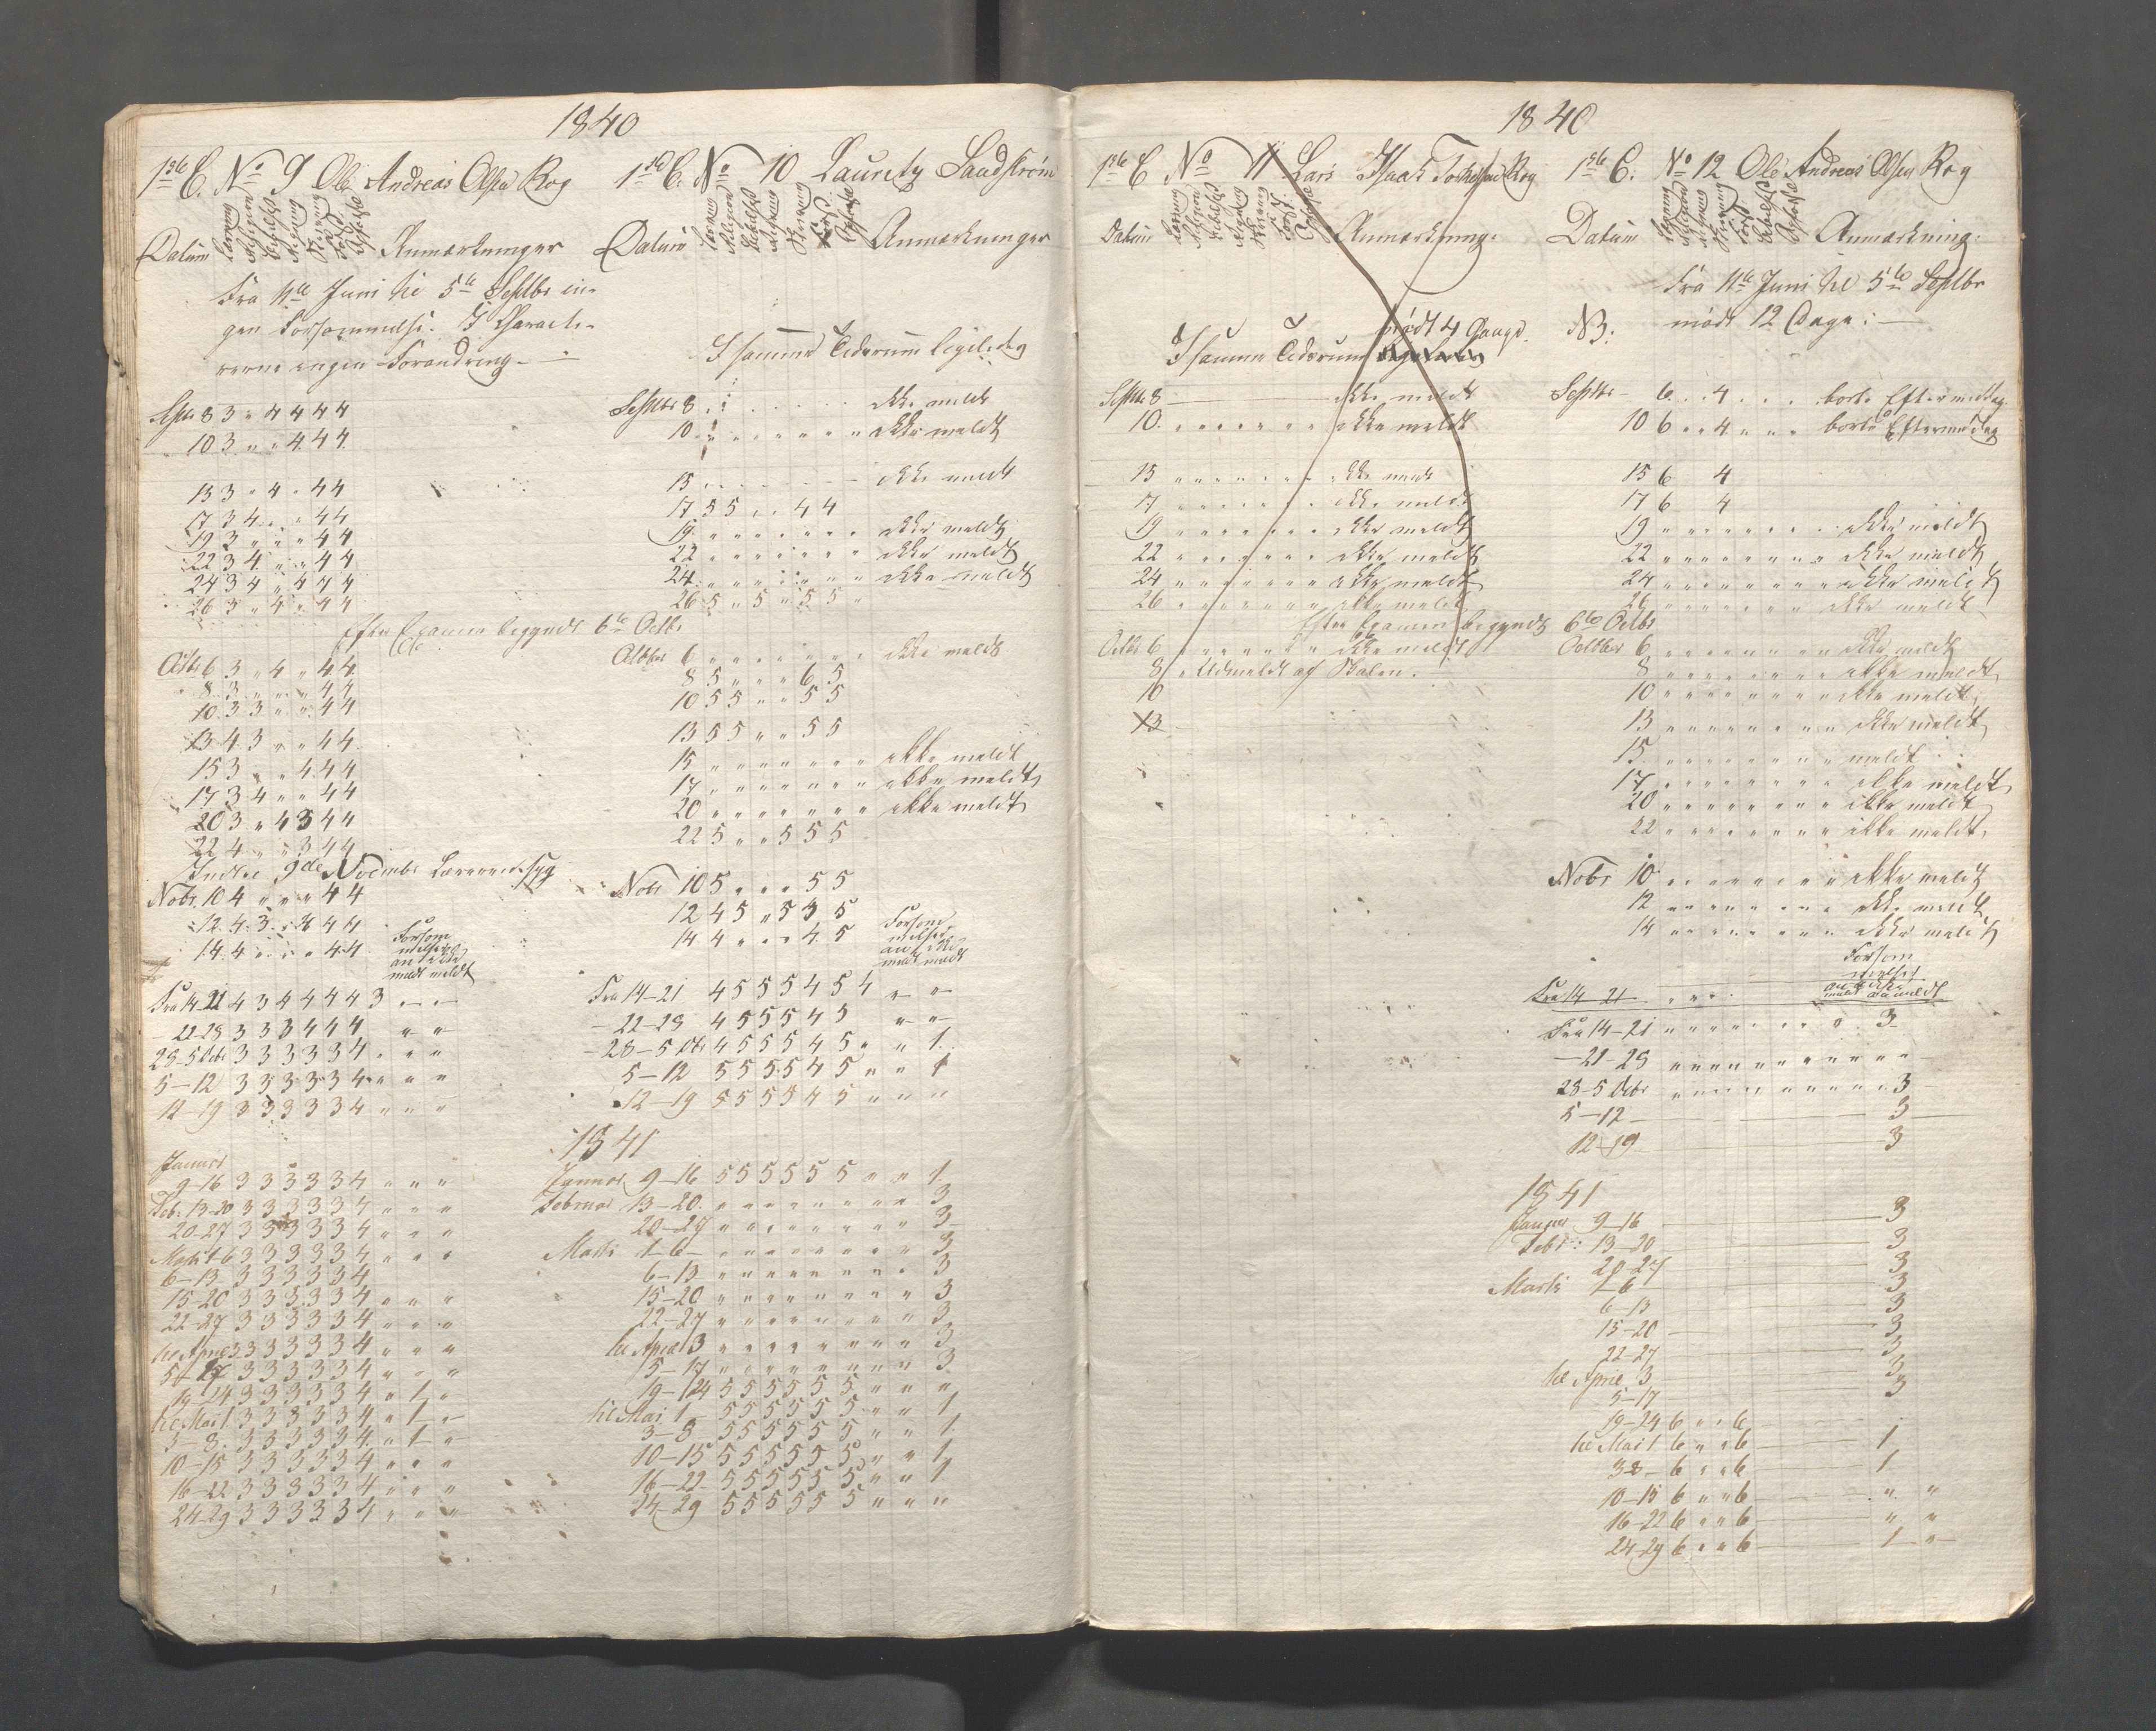 1840
1ste C. No 9 Ole Andreas Olsen Røg
Datum Anmærkninger
Fra 11te Juni til 5te Septbr in-
gen Forsømmelse. I Charack-
rerne ingen Forandring.
Septbr 8 3 " 4 4 4 4
10 3 " " 4 4 4
15 3 " 4 " 4 4
17 3 4 " " 4 4
19 3 " " " 4 4
22 3 4 " " 4 4
24 3 4 " 4 4 4
26 3 " 4 " 4 4
Efter Examen begyndt 6te Octbr
Octbr 6 3 " 4 " 4 4
8 3 " " " 4 4
10 3 3 " " 4 4
13 4 3 " " 4 4
15 3 " " 4 4 4
17 3 4 " " 4 4
20 3 " 4 3 4 4
22 4 " " 3 4 4
Indtil 9de Novembr Læreren syg
Nobr. 10 4 " " " 4 4
12 4 3 " 4 4 4
14 4 " " " 4 4
Forsøm
melser
an ikke
meldt meldt
Fra 14-21 4 3 4 4 4 4 3 " "
22-28 3 3 3 4 4 4 " "
28-5 Debr 3 3 3 3 3 4 " " "
5-12 3 3 3 3 3 4 " " "
12-19 3 3 3 3 3 4 " " "
Januar
9-16 3 3 3 3 3 4 " " "
Febr. 13-20 3 3 3 3 3 4 " " "
20-27 3 3 3 3 3 4 " " "
Marts 1-6 3 3 3 3 3 4 " " "
6-13 3 3 3 3 3 4
15-20 3 3 3 3 3 4 " " "
22-27 3 3 3 3 3 4 " " "
til April 3 3 3 3 3 3 4 " " "
5-17 3 3 3 3 3 4 " " "
19-24 3 3 3 3 3 4 " 1 "
til Mai 1 3 3 3 3 3 4 " 1 "
3-8 3 3 3 3 3 4 " 1 "
10-15 3 3 3 3 3 4 " " "
16-22 3 3 3 3 3 4 " " "
24-29 3 3 3 3 3 4 " " "
1ste C. No 10 Lauretz Sandstrøm
Datum Anmærkninger
I samme Tidsrum ligeledes
Septbr 8 ikke meldt
10 " " " " " " " ikke meldt
15 ikke meldt
17 5 5 " " 4 4
19 " " " " " " " ikke meldt
22 " " " " " " " ikke meldt
24 " " " " " " " ikke meldt
26 5 " 5 " 5 5 "
Octbr 6 " " " " " " " ikke meldt
8 5 " " " 6 5
10 5 5 " " 5 5
13 5 5 " " 5 5
15 " " " " " " " ikke meldt
17 " " " " " " " ikke meldt
20 " " " " " " " ikke meldt
22 5 " " 5 5 5
Nobr 10 5 " " " 5 5
12 4 5 " 5 5 5
14 4 " " " 4 5
Forsøm
melser
an ikke
meldt meldt
Fra 14-21 4 5 5 5 4 5 4 " "
22-28 4 5 5 5 4 5 " "
28-5 Dbr 4 5 5 5 4 5 " " 1
5-12 5 5 5 5 4 5 " " 1
12-19 5 5 5 5 4 5 " " "
1841
Januar 9-16 5 5 5 5 5 5 " " 1
Februar 13-20 " " " " " " " " 3
20-27 " " " " " " " " 3
Marts 1-6 " " " " " " " " 3
6-13 " " " " " " " " 3
15-20 " " " " " " " " 3
22-27 " " " " " " " " 3
til April 3 " " " " " " " " 3
15-17 " " " " " " " " 3
19-24 5 5 5 5 5 5 " " "
til Mai 1 5 5 5 5 5 5 " " 1
3-8 5 5 5 5 5 5 " " 1
10-15 5 5 5 5 5 5 " " 1
16-22 5 5 5 5 5 5 " " 1
24-29 5 5 5 5 5 5 " " "
1840
1ste C No 11 Lars Isaak Røg
Datum Anmærkning:
mødt 4 Gange.
I samme Tidsrum
Septbr 8 ikke meldt
10 " " " " " " " ikke meldt
15 " " " " " " " ikke meldt
17 " " " " " " " ikke meldt
19 " " " " " " " ikke meldt
22 " " " " " " " ikke meldt
24 " " " " " " " ikke meldt
26 " " " " " " " ikke meldt
Efter Examen begyndt 6te Octbr
Octbr 6 " " " " " " " ikke meldt
8 " Udmeldt af Skolen.
10
13
1ste C. No 12 Ole Andreas Olsen Røg
Datum Anmærkning:
Fra 11te Juni til 5te Septbr
NB: mødt 12 Dage:
Septbr 6 . . 4 . . . borte Eftermiddag
10 6 " " 4 " " " borte Eftermiddag
15 6 4
17 6 4
19 " " " " " " " ikke meldt
22 " " " " " " " ikke meldt
24 " " " " " " " ikke meldt
26 " " " " " " " ikke meldt
Octbr 6 " " " " " " " ikke meldt
8 " " " " " " " ikke meldt
10 " " " " " " " ikke meldt
13 " " " " " " " ikke meldt
15 " " " " " " " meldt
17 " " " " " " " ikke meldt
20 " " " " " " " ikke meldt
22 " " " " " " " ikke meldt
Nobr 10 " " " " " " " ikke meldt
12 " " " " " " " ikke meldt
14 " " " " " " " ikke meldt
Forsøm
melser
an ikke
meldt anmeldt
Fra 14 21 " " "
Fra 14-21 " " " " " " " " 3
21-28 " " " " " " " " " "
28-5 Debr " " " " " " " " 3
5-12 3
12-19 3
1841
Januar 9-16 3
Febr: 13-20 3
20-27 3
Marts 1-6 3
6-13 3
15-20 3
22-27 3
til April 3 3
5-17 3
19-24 6 " " 6
til Mai 1 6 " " 6 1
3-8 6 " " 6 1
10-15 6 " " 6 " "
16-22 6 " " 6 " "
24-29 6 " " 6 1 "